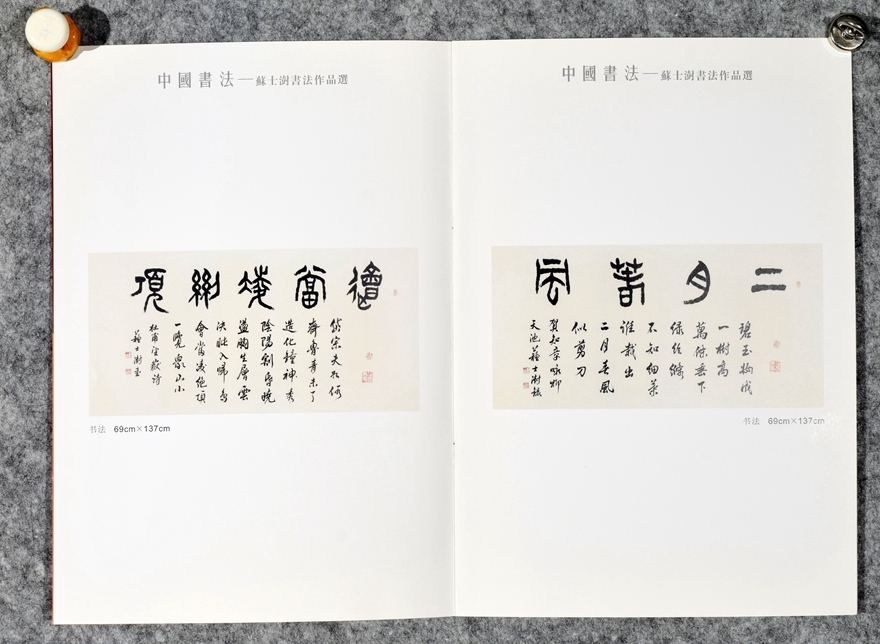 中國書法—蘇士澍書法作品選
會當凌絕頂
岱宗夫如何
齊魯青未了
造化鍾神秀
陰陽割昏曉
盪胸生層雲
決眦入歸鳥
會當凌絕頂
一覽眾山小
杜甫望嶽詩
蘇士澍書
书法 69cm×137cm
中國書法—蘇士澍書法作品選
二月春風
碧玉妝成
一樹高
萬條垂下
綠絲絛
不知細葉
誰裁出
二月春風
似剪刀
賀知章咏柳
天池蘇士澍
书法 69cm×137cm